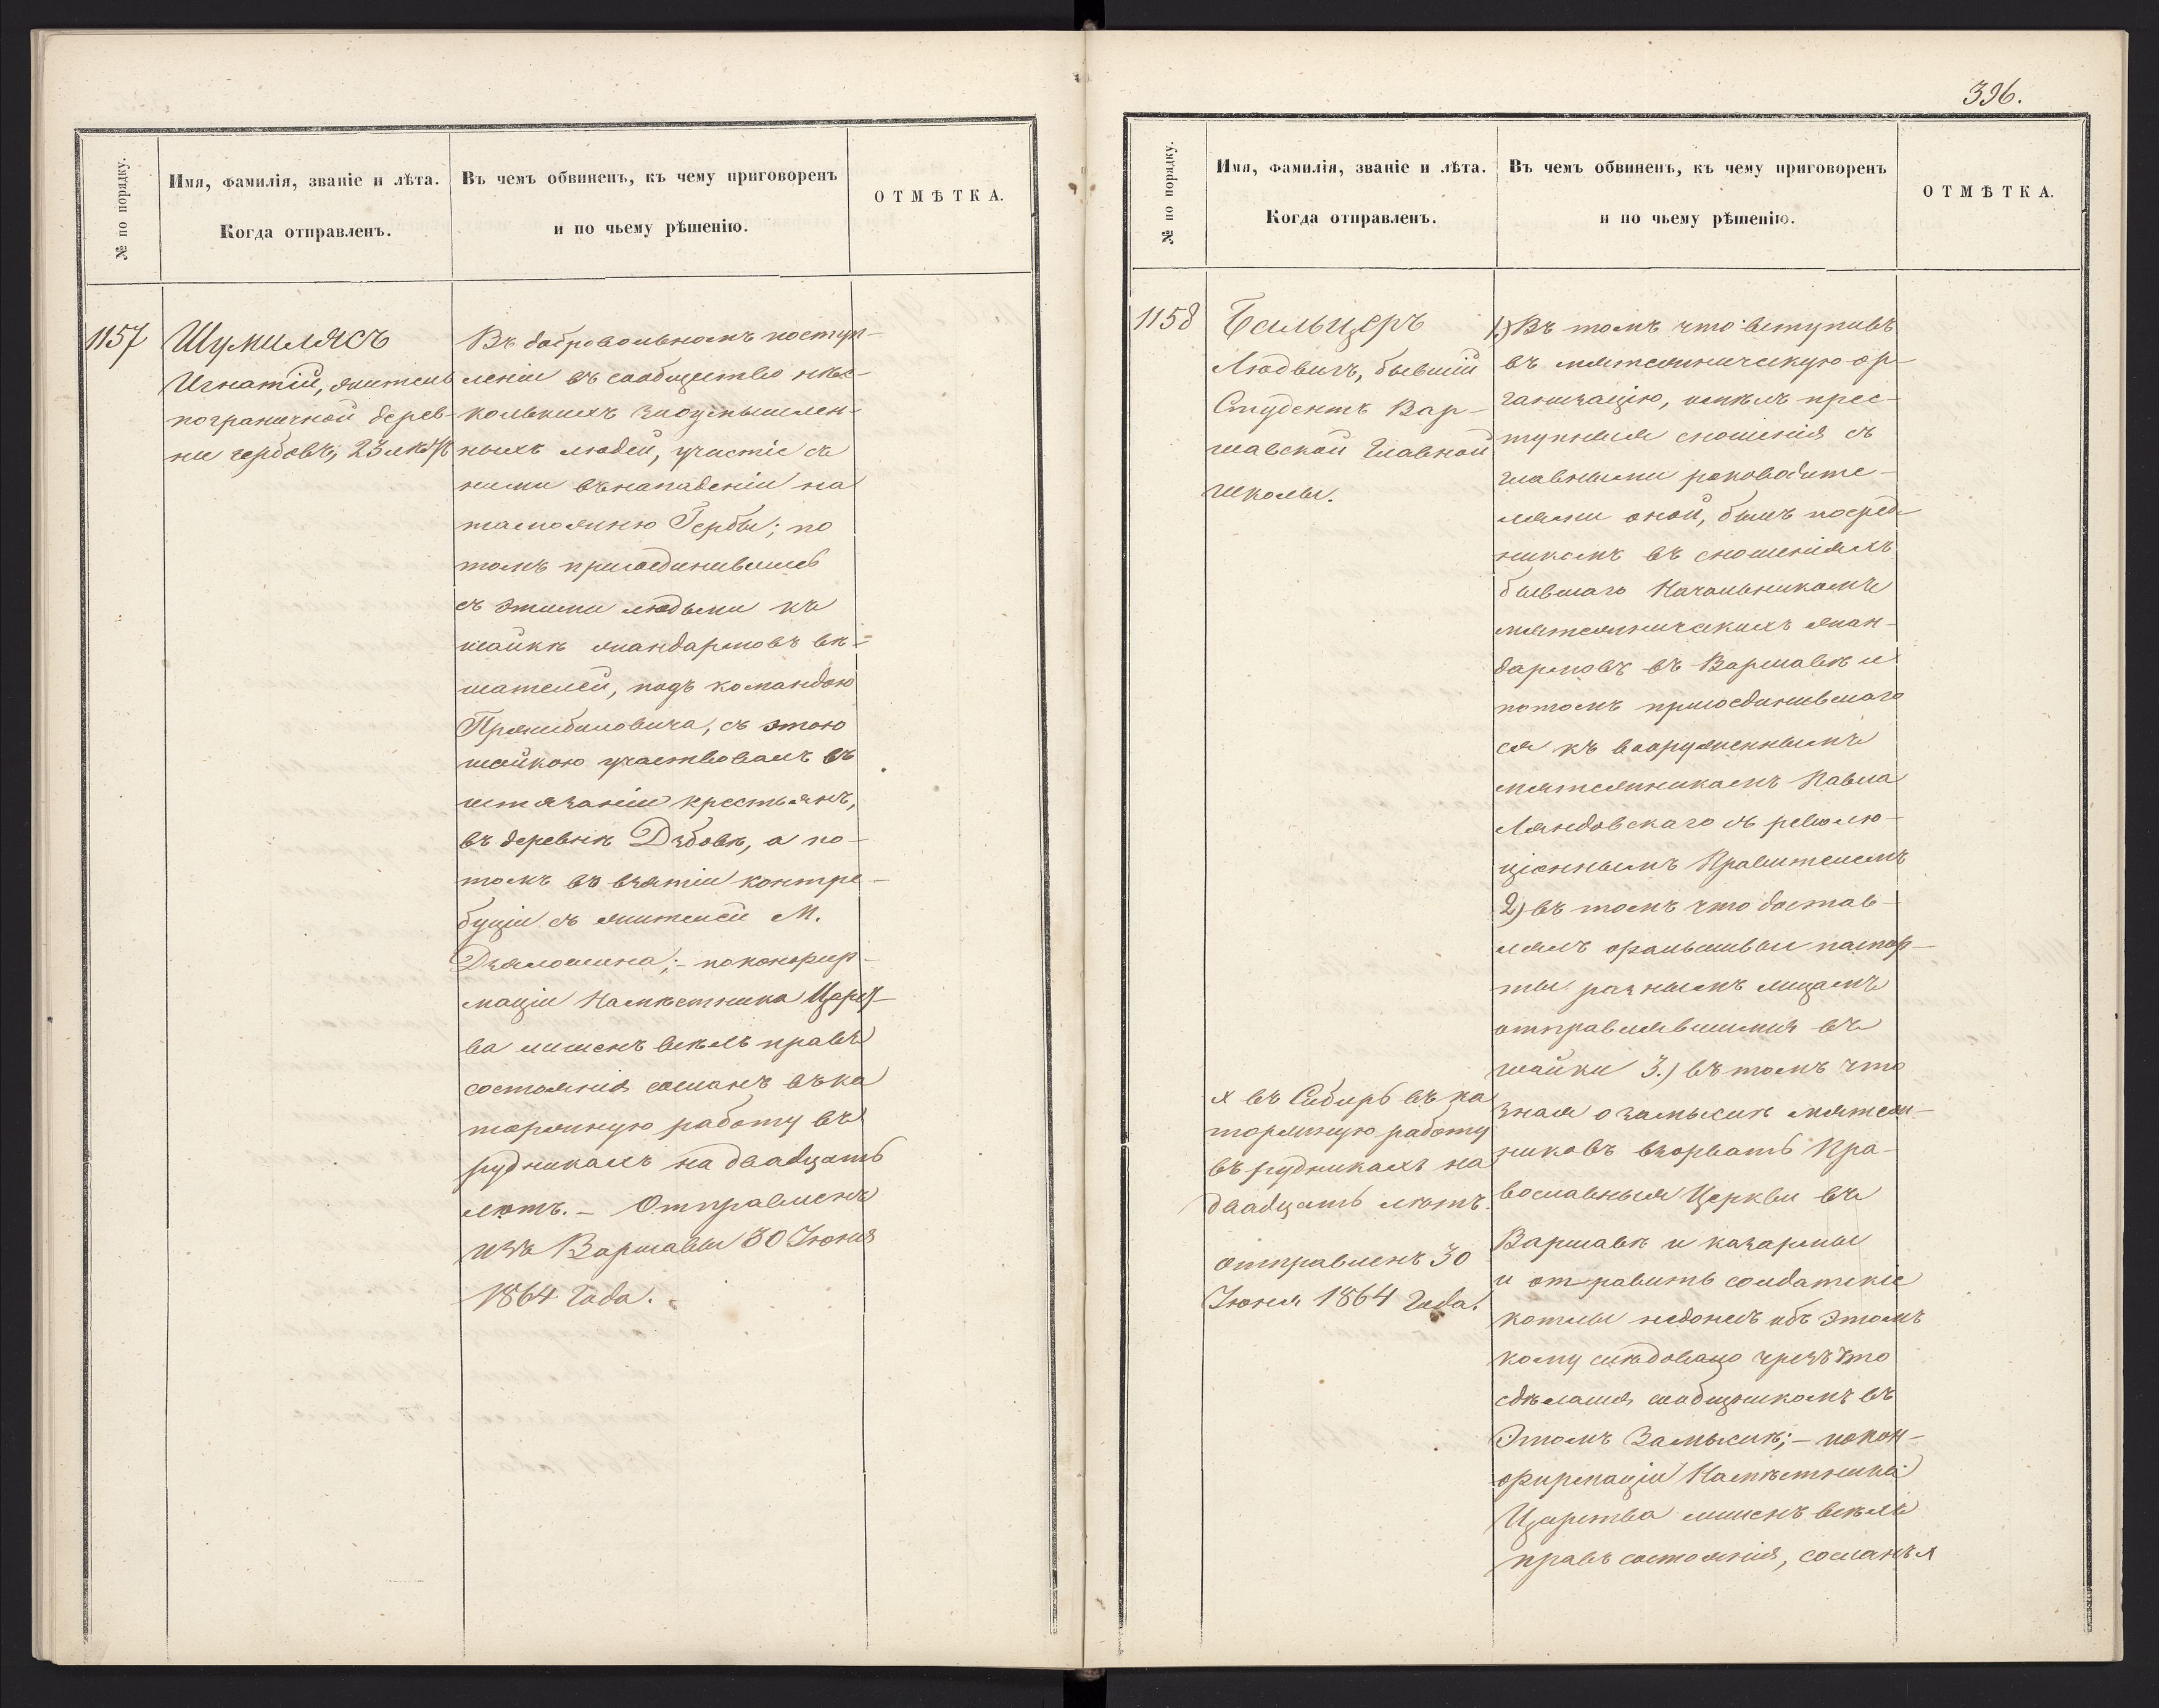 № по порядку.
Имя, фамилія, званіе и лѣта.
Когда отправленъ.
Въ чемъ обвиненъ, къ чему приговоренъ
и по чьему рѣшенію.
ОТМѢТКА.
1157
Шумилясъ
Игнатій, житель
пограничной дерев-
ни Гербовъ, 23 лѣтъ
Въ добровольномъ поступ-
леніи въ сообщество нѣс-
колькихъ злоумышлен-
ныхъ людей, участіе съ
ними въ нападеніи на
таможню Гербы; по
томъ присоединившись
съ этими людьми къ
шайкѣ жандармовъ вѣ-
шателей, подъ командою
съ этою
шайкою участвовалъ въ
истязаніи крестьянъ,
въ деревнѣ Дубовѣ, а по-
томъ въ взятіи контри-
буціи съ жителей М.
Дзялошина; - по конфир-
маціи Намѣстника Царст-
ва лишенъ всѣхъ правъ
состоянія сосланъ въ ка
торжную работу въ
рудникахъ на двадцать
лѣтъ. - Отправленъ
изъ Варшавы 30 Іюня
1864 года.
396.
№ по порядку.
Имя, фамилія, званіе и лѣта.
Когда отправленъ.
Въ чемъ обвиненъ, къ чему приговоренъ
и по чьему рѣшенію.
ОТМѢТКА.
1158
Бальцеръ
Людвигъ, бывшій
Студентъ Вар-
шавской Главной
школы.
1.) Въ томъ что вступивъ
въ мятежническую ор-
ганизацію, имѣлъ прес-
тупныя сношенія съ
главными руководите-
лями оной, былъ посред-
никомъ въ сношеніяхъ
бывшаго Начальникомъ
мятежническихъ жан-
дармовъ въ Варшавѣ и
потомъ присоединившаго
ся къ вооруженнымъ
мятежникамъ Павла
Ляндовскаго съ револю-
ціоннымъ Правителемъ
2) въ томъ что достав-
лялъ фальшивые паспор-
ты разнымъ лицамъ
отправлявшимся въ
шайки 3.) въ томъ что
зная о замыслѣ мятеж-
никовъ взорвать Пра-
вославныя Церкви въ
Варшавѣ и казармы
и отравить солдатскіе
котлы недонесъ объ этомъ
кому слѣдовало чрезъ что
сдѣлался сообщникомъ въ
этомъ замыслѣ; - по кон-
фирмаціи Намѣстника
Царства лишенъ всѣхъ
правъ состоянія, сосланъ х
х въ Сибирь въ ка
торжную работу
въ рудникахъ на
двадцать лѣтъ.
отправленъ 30
Іюня 1864 года.